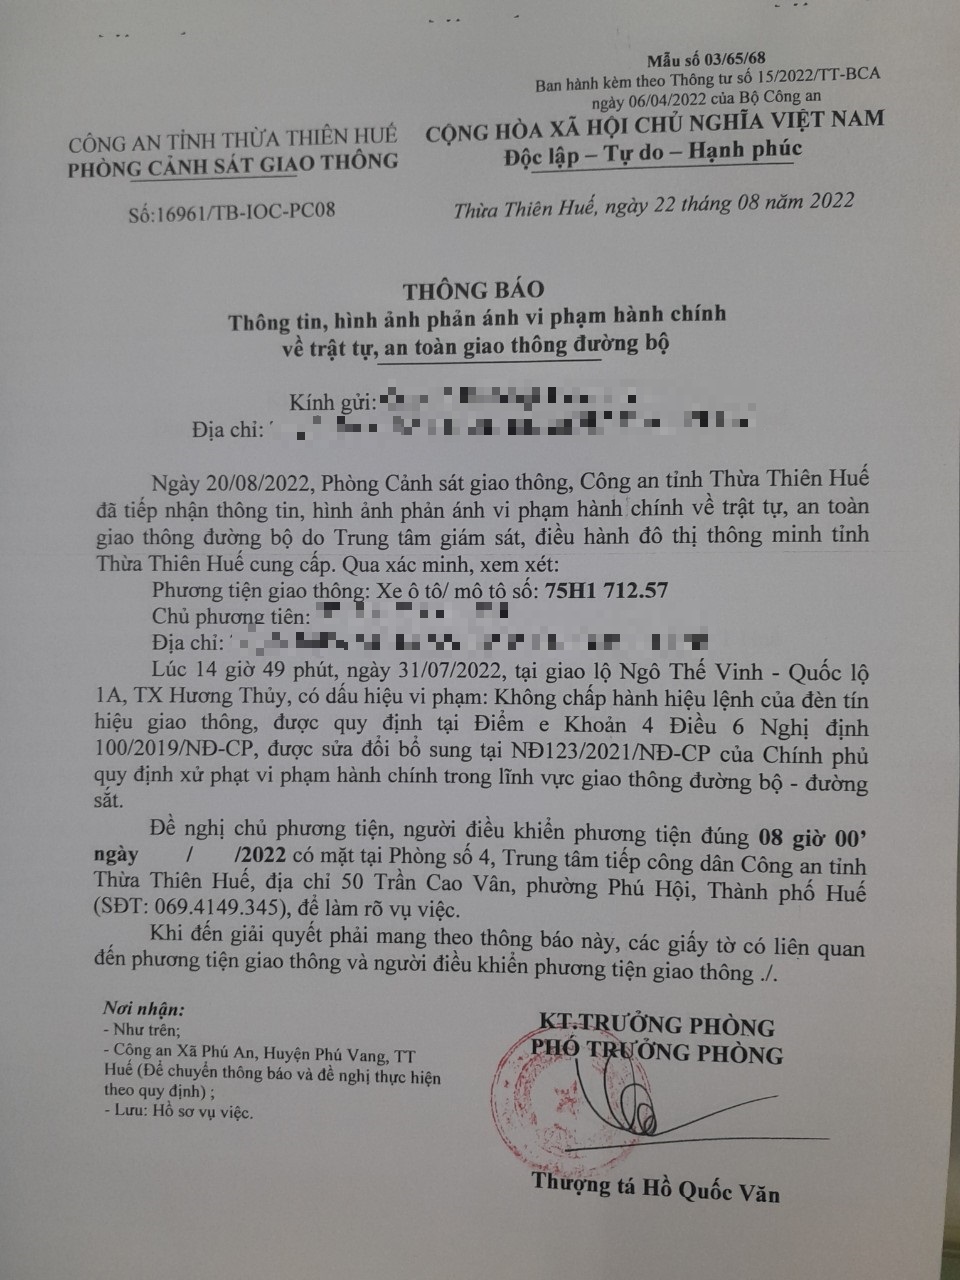 Mẫu số 03/65/68
Ban hành kèm theo Thông tư số 15/2022/TT-BCA
ngày 06/04/2022 của Bộ Công an
CÔNG AN TỈNH THỪA THIÊN HUẾ
PHÒNG CẢNH SÁT GIAO THÔNG
CỘNG HÒA XÃ HỘI CHỦ NGHĨA VIỆT NAM
Độc lập – Tự do – Hạnh phúc
Số:16961/TB-IOC-PC08
Thừa Thiên Huế, ngày 22 tháng 08 năm 2022
THÔNG BÁO
Thông tin, hình ảnh phản ánh vi phạm hành chính
về trật tự, an toàn giao thông đường bộ
Kính gửi:
Địa chỉ:
Ngày 20/08/2022, Phòng Cảnh sát giao thông, Công an tỉnh Thừa Thiên Huế
đã tiếp nhận thông tin, hình ảnh phản ánh vi phạm hành chính về trật tự, an toàn
giao thông đường bộ do Trung tâm giám sát, điều hành đô thị thông minh tỉnh
Thừa Thiên Huế cung cấp. Qua xác minh, xem xét:
Phương tiện giao thông: Xe ô tô/ mô tô số: 75H1 712.57
Chủ phương tiên:
Địa chỉ:
Lúc 14 giờ 49 phút, ngày 31/07/2022, tại giao lộ Ngô Thế Vinh - Quốc lộ
1A, TX Hương Thủy, có dấu hiệu vi phạm: Không chấp hành hiệu lệnh của đèn tín
hiệu giao thông, được quy định tại Điểm e Khoản 4 Điều 6 Nghị định
100/2019/NĐ-CP, được sửa đổi bổ sung tại NĐ123/2021/NĐ-CP của Chính phủ
quy định xử phạt vi phạm hành chính trong lĩnh vực giao thông đường bộ - đường
sắt.
Đề nghị chủ phương tiện, người điều khiển phương tiện đúng 08 giờ 00’
ngày / /2022 có mặt tại Phòng số 4, Trung tâm tiếp công dân Công an tỉnh
Thừa Thiên Huế, địa chỉ 50 Trần Cao Vân, phường Phú Hội, Thành phố Huế
(SĐT: 069.4149.345), để làm rõ vụ việc.
Khi đến giải quyết phải mang theo thông báo này, các giấy tờ có liên quan
đến phương tiện giao thông và người điều khiển phương tiện giao thông ./.
Nơi nhận:
- Như trên;
- Công an Xã Phú An, Huyện Phú Vang, TT
Huế (Để chuyển thông báo và đề nghị thực hiện
theo quy định) ;
- Lưu: Hồ sơ vụ việc.
KT.TRƯỞNG PHÒNG
PHÓ TRƯỞNG PHÒNG
Thượng tá Hồ Quốc Văn